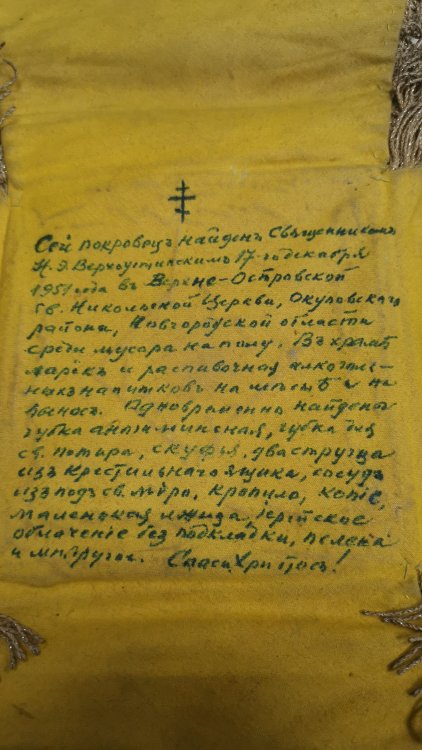 Сей покровецъ найденъ Священникомъ
Н. Э. Верхоустинскимъ 17-го декабря
1951 года въ Верхне-Островской
св. Никольской Церкви, Окуловскаго
района, Новгородской области
среди мусора на полу. Въ храмѣ
ларёкъ и распивочная алкоголь-
ныхъ напитковъ на мѣстѣ и на
выносъ. Одновременно найдены
губка антиминсная, губка для
св. потира, скуфья, два стручца
изъ крестильнаго ящика, сосудъ
изъ подъ св. мѵра, кропило, копіе,
маленькая лжица, іерейское
облаченіе без подкладки, пелена
и мн. другое. Спаси Христосъ!